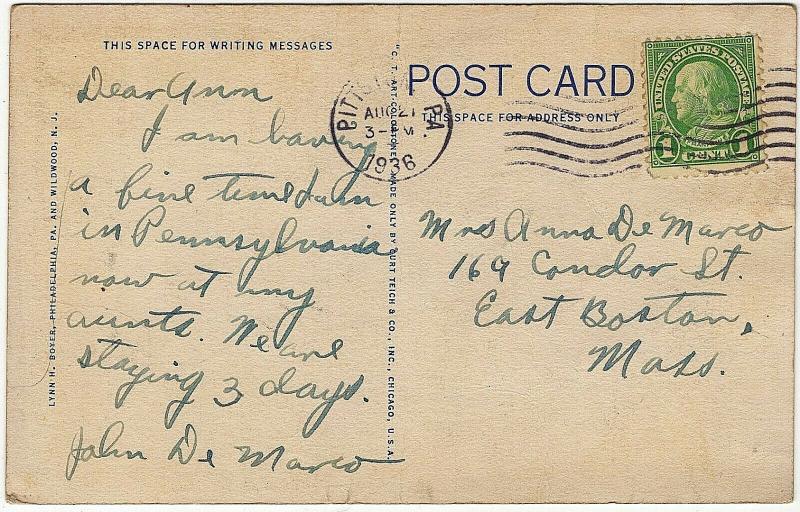 THIS SPACE FOR WRITING MESSAGES
Dear Ann
I am having
a fine time I am
in Pennsylvania
now at my
aunts. We are
staying 3 days.
John De Marco
LYNN H. BOYER, PHILADELPHIA, PA. AND WILDWOOD, N. J.
"C. T. ART-COLORTONE" MADE ONLY BY CURT TEICH & CO., INC., CHICAGO, U.S.A.
POST CARD
THIS SPACE FOR ADDRESS ONLY
PA
AUG 21
3- PM
1936
UNITED STATES POSTAGE
1 CENT 1
Mrs Anna De Marco
169 Condor St.
East Boston,
Mass.